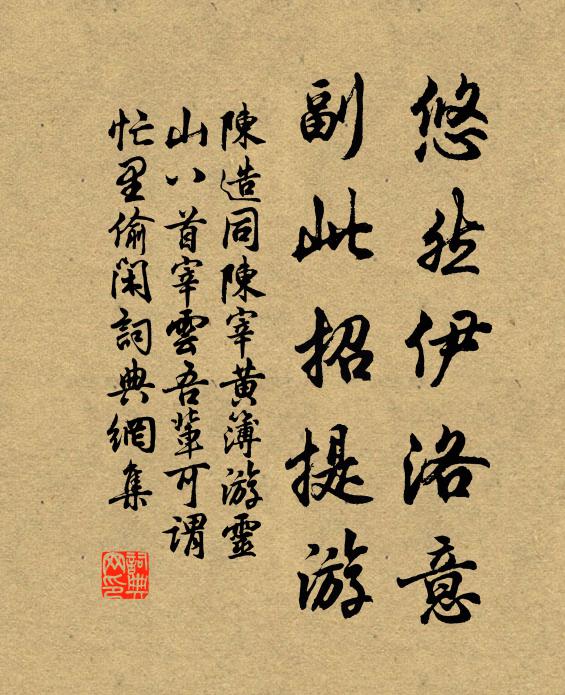 悠然伊洛意
副此招提游
陳造同陳宰黄簿游靈
山八首宰雲吾輩可謂
忙里偷闲詞典網集
詞典
网印